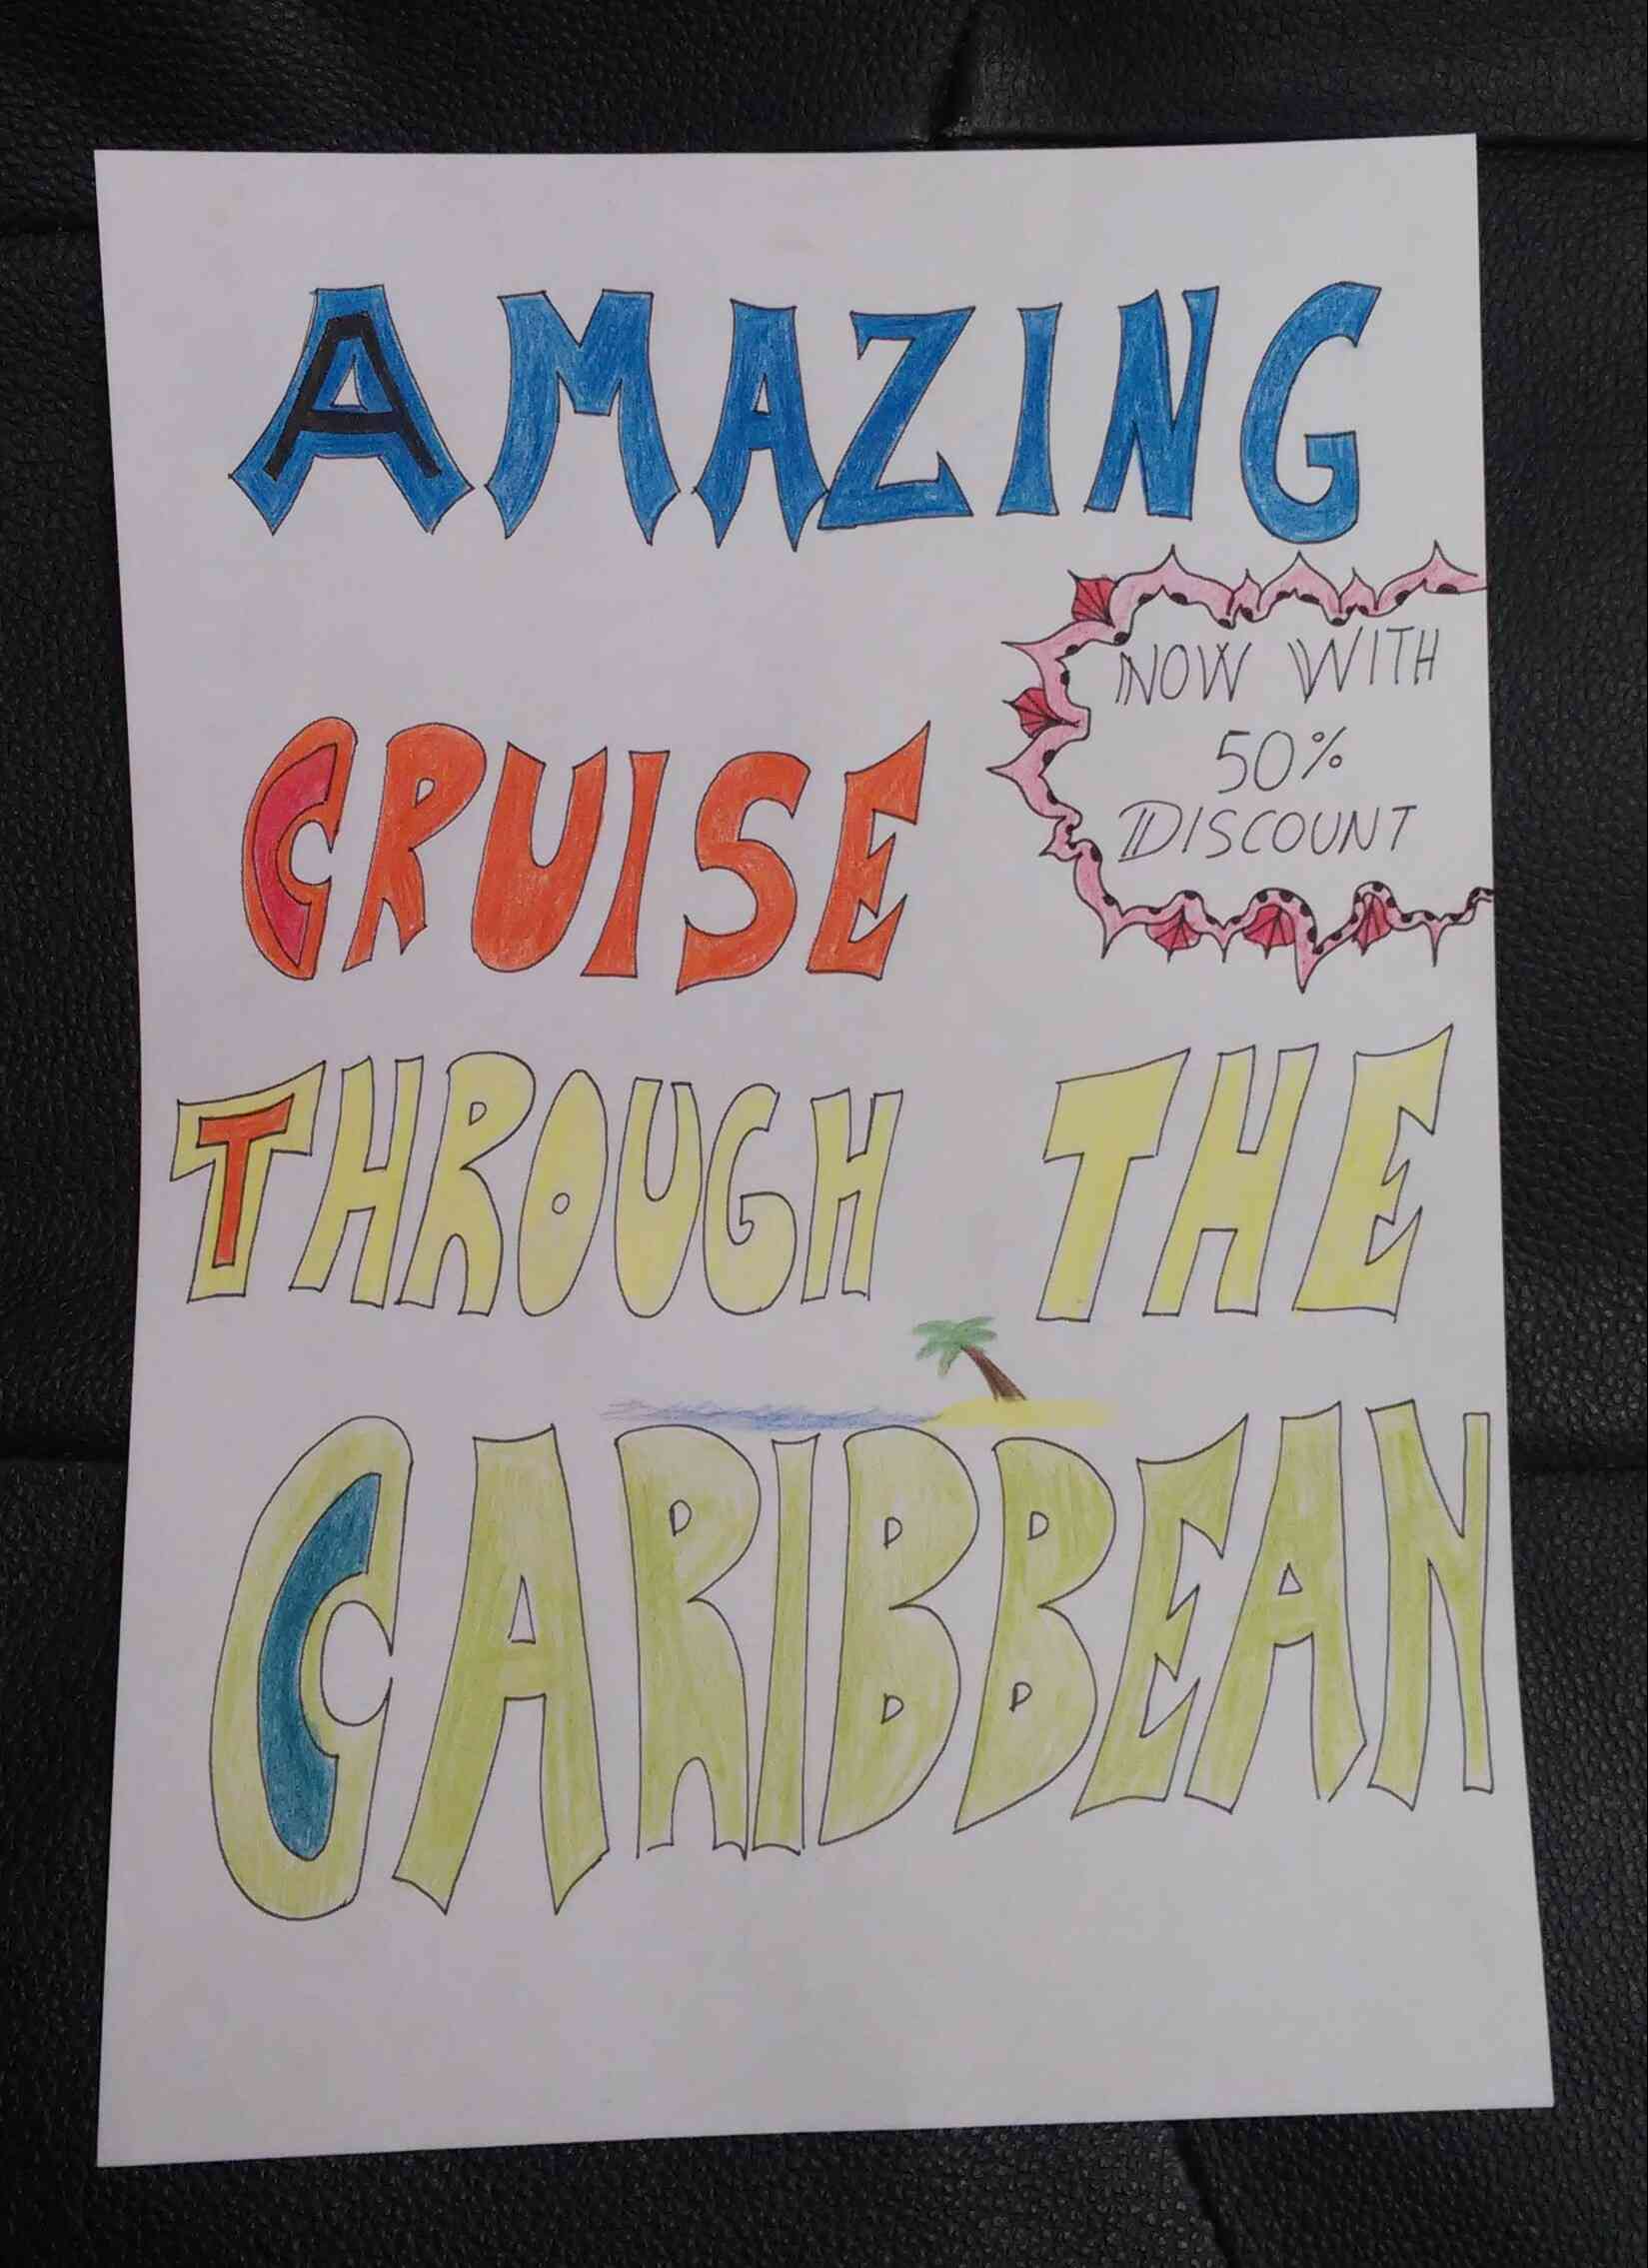 AMAZING
NOW WITH
50%
DISCOUNT
CRUISE
THROUGH THE
CARIBBEAN